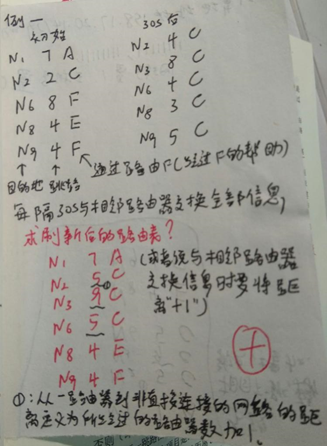 例一
初始
N1 7 A
N2 2 C
N6 8 F
N8 4 E
N9 4 F
30S后
N2 4 C
N3 8 C
N6 4 C
N8 3 C
N9 5 C
目的地 跳 经过路由F(经过F的帮助)
每隔30S与相邻路由器交换全部信息,
求刷新后的路由表?
N1 7 A
N2 5 C ①
N3 9 C
N6 5 C
N8 4 E
N9 4 F
(或者说与相邻路由器
交换信息时要将距
离"+1")
+
①:从一路由器到非直接连接的网络的距
离定义为所经过的路由器数加1.